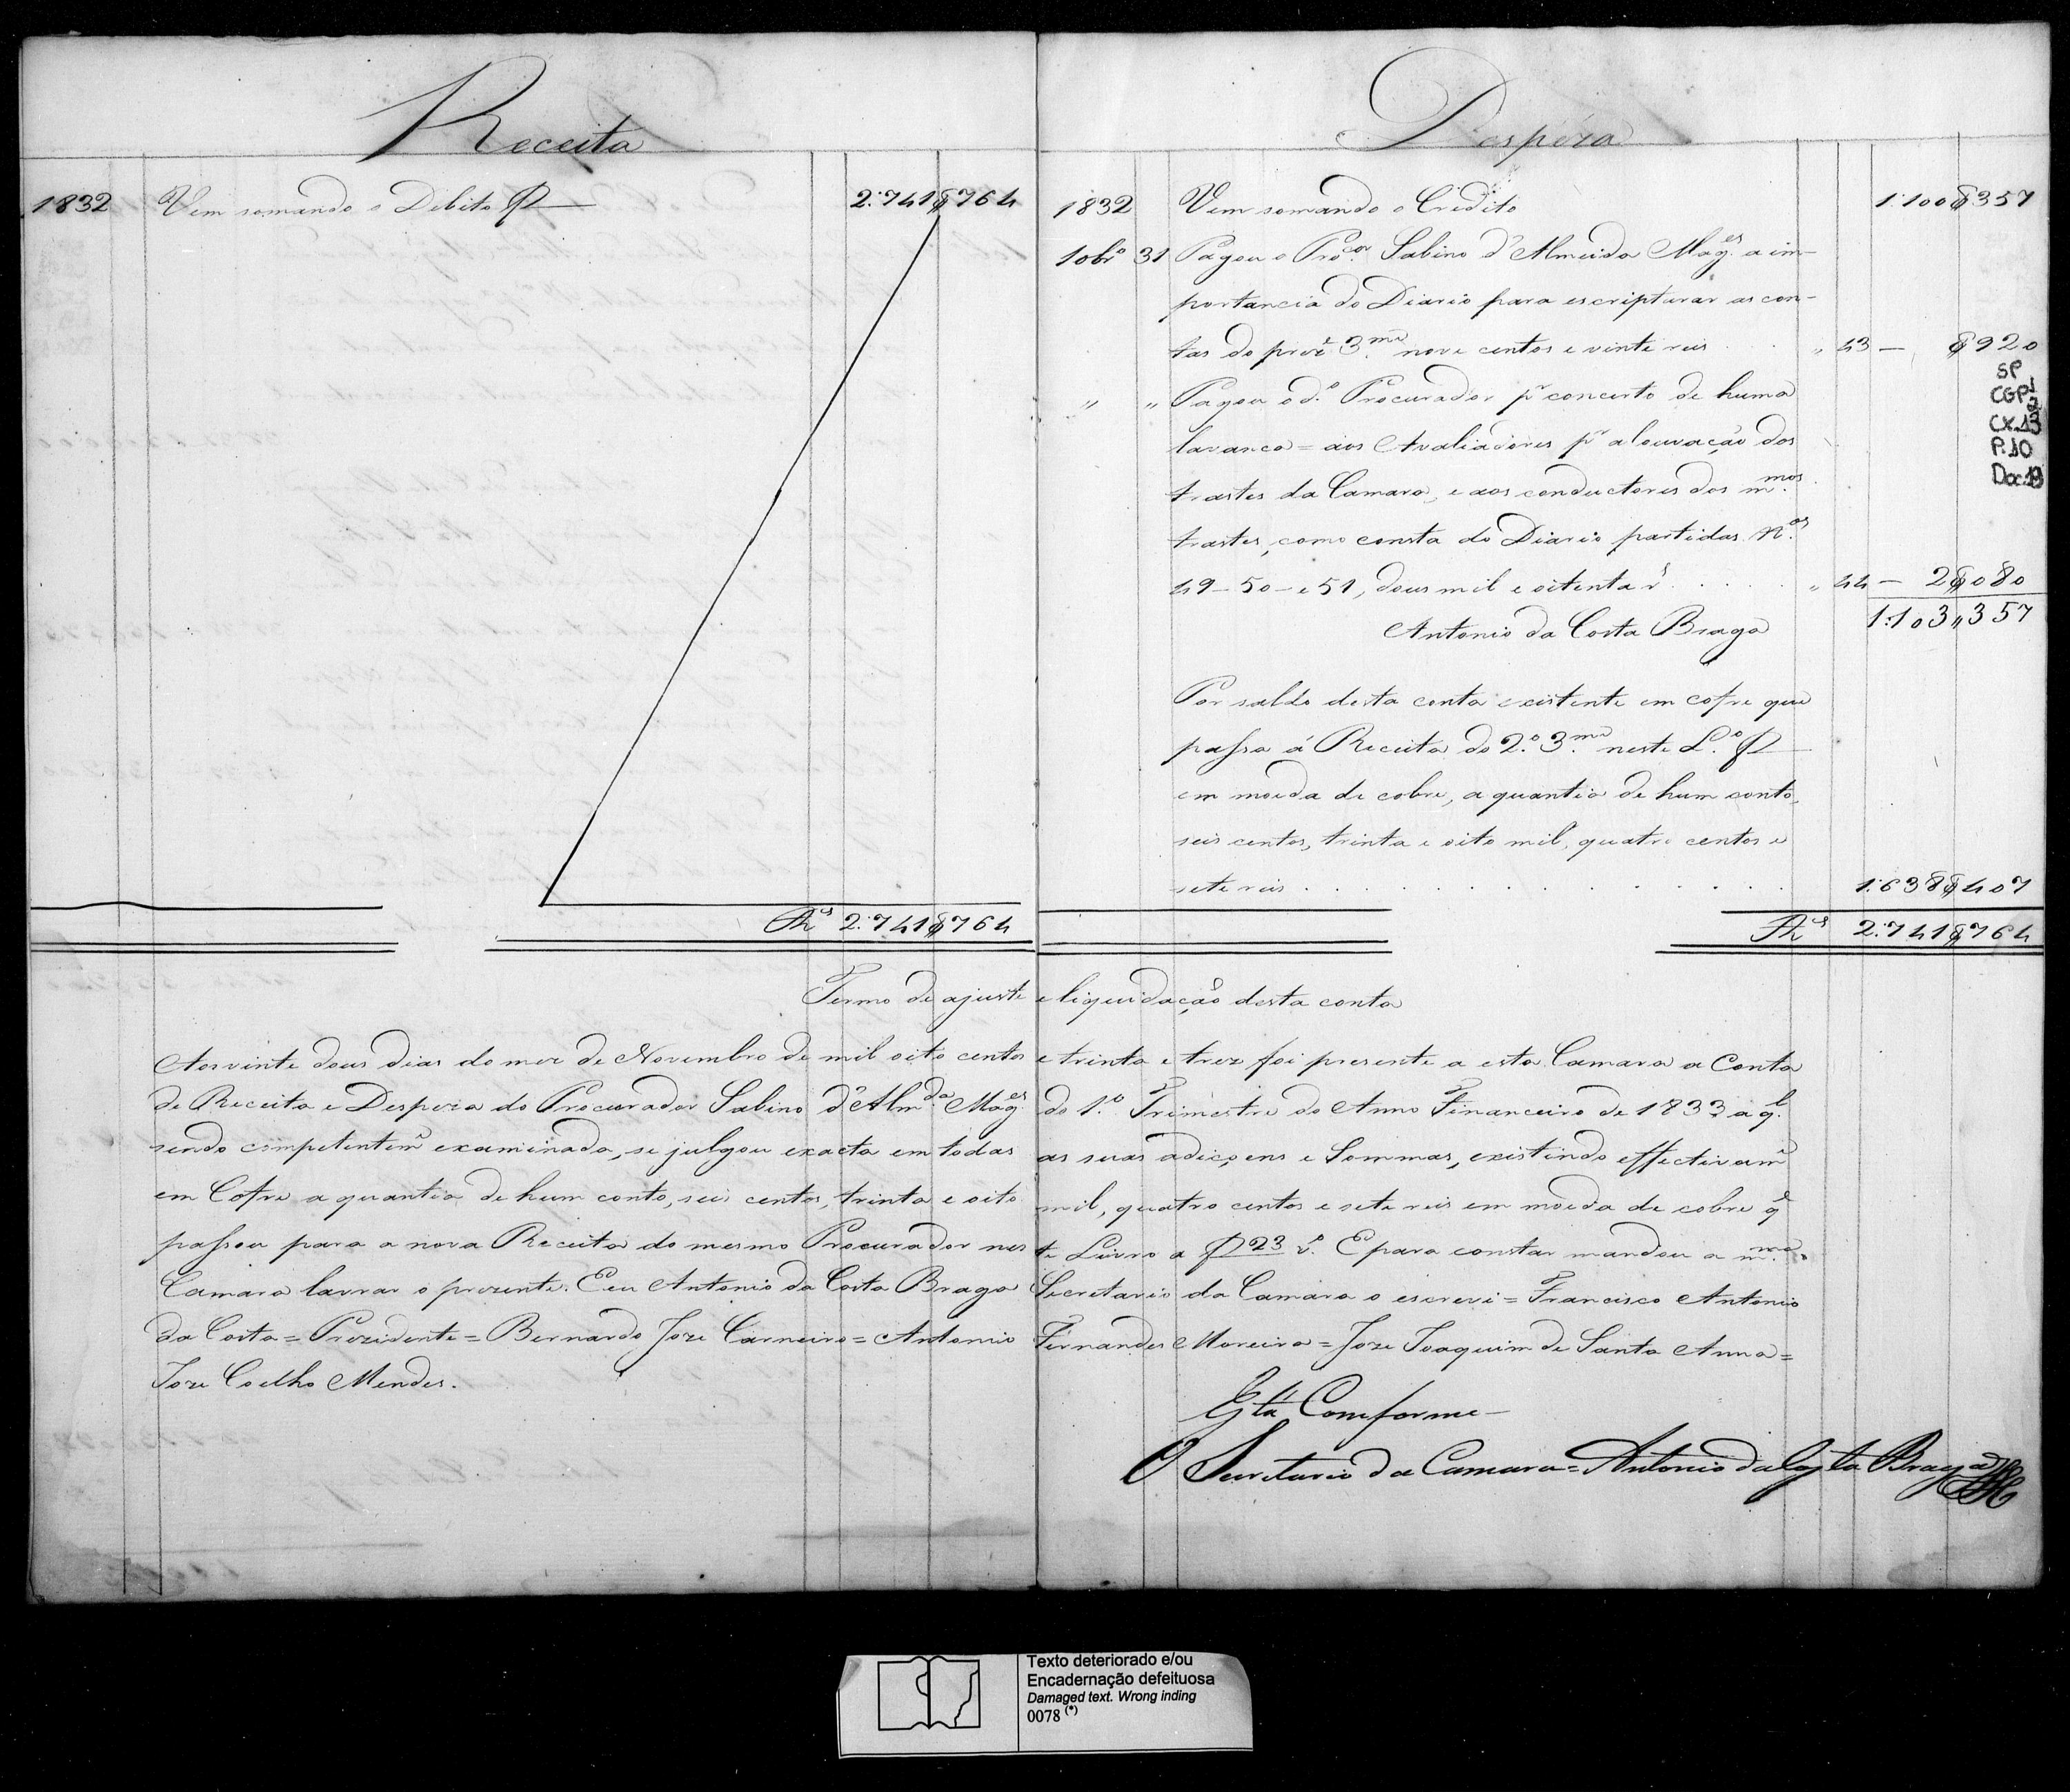 Receita
1832 Vem somando o Debito 2:741$764
Rs 2:741$764
Despeza
1832 Vem somando o Credito 1:100$357
10br.o 31 Pagou o Proc.or Sabino d'Almeida Mag.es a im-
portancia do Diario para escripturar as con-
tas do prez.e 3.me nove centos e vinte reis . . " 43 — $920
SP
CGP1
CX.13
P.10
Doc.19
" " Pagou o d.o Procurador p.r concerto de huma
lavanca = aos Avaliadores p.r a louvação dos
trastes da Camara, e aos conductores dos m.mos
trastes, como consta do Diario partidas N.os
49 – 50 – e 51, dous mil e oitenta r.s . . . . " 44 — 2$080
Antonio da Costa Braga 1:103"357
Por saldo desta conta existente em cofre que
passa á Receita do 2.o 3.me neste L.o
em moeda de cobre, a quantia de hum conto,
seis centos, trinta e oito mil, quatro centos e
sete reis . . . . . . . . . . . 1:638$407
Rs 2:741$764
Termo de ajuste e liquidação desta conta
Aos vinte dous dias do mez de Novembro de mil oito centos e trinta e trez foi presente a esta Camara a Conta
de Receita e Despeza do Procurador Sabino d'Alm.da Mag.es do 1.o Trimestre do Anno Financeiro de 1833 a q.l
sendo competentem.e examinada, se julgou exacta em todas as suas adiçoens e Sommas, existindo effectivam.e
em Cofre a quantia de hum conto, seis centos, trinta e oito mil, quatro centos e sete reis em moeda de cobre q.e
passou para a nova Receita do mesmo Procurador nes te Livro a f 23 v.o E para constar mandou a m.ma
Camara lavrar o prezente. E eu Antonio da Costa Braga Secretario da Camara o escrevi = Francisco Antonio
da Costa = Prezidente = Bernardo Joze Carneiro = Antonio Fernandes Moreira = Joze Joaquim de Santa Anna =
Joze Coelho Mendes.
Está Comforme
O Secretario da Camara = Antonio da Costa Braga
Texto deteriorado e/ou
Encadernação defeituosa
Damaged text. Wrong inding
0078 (*)